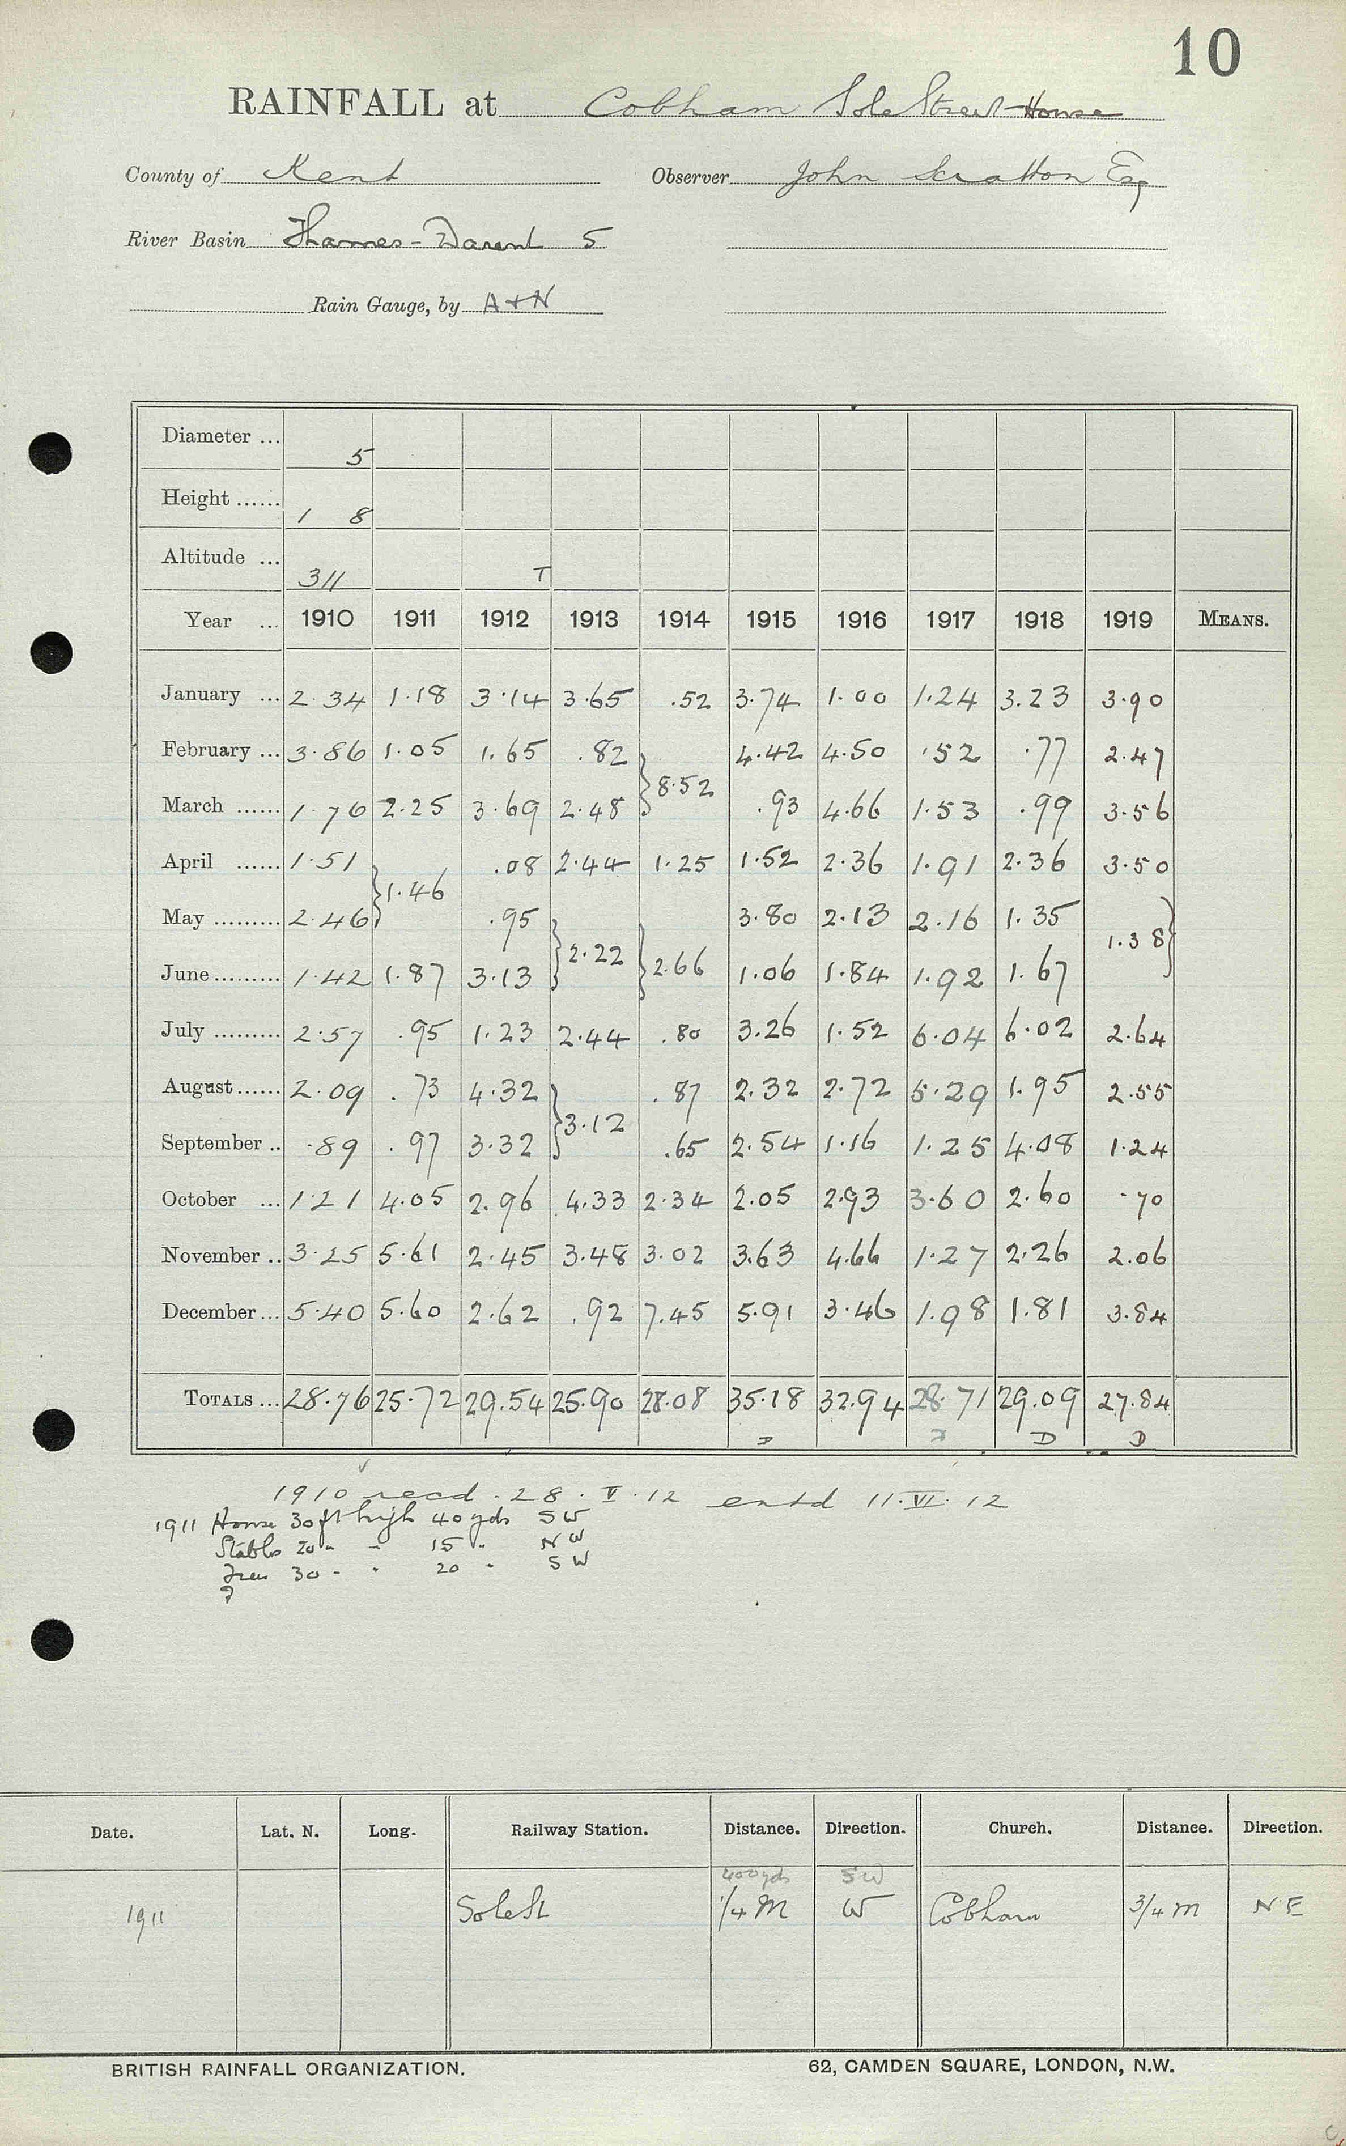 10
RAINFALL at Cobham Sole Street House
County of Kent Observer John Scratton Esq
River Basin Thames - Darent 5
Rain Gauge, by A + N
Diameter ... 5
Height ...... 1 8
Altitude ... 311 T
Year ... 1910 1911 1912 1913 1914 1915 1916 1917 1918 1919 MEANS.
January ... 2.34 1.18 3.14 3.65 .52 3.74 1.00 1.24 3.23 3.90
February ... 3.86 1.05 1.65 .82 4.42 4.50 .52 .77 2.47
8.52
March ...... 1.76 2.25 3.69 2.48 .93 4.66 1.53 .99 3.56
April ...... 1.51 .08 2.44 1.25 1.52 2.36 1.91 2.36 3.50
1.46
May ......... 2.46 .95 3.80 2.13 2.16 1.35
2.22 2.66 1.38
June ......... 1.42 1.87 3.13 1.06 1.84 1.92 1.67
July ......... 2.57 .95 1.23 2.44 .80 3.26 1.52 6.04 6.02 2.64
August ...... 2.09 .73 4.32 .87 2.32 2.72 5.29 1.95 2.55
3.12
September .. .89 .97 3.32 .65 2.54 1.16 1.25 4.08 1.24
October ... 1.21 4.05 2.96 4.33 2.34 2.05 2.93 3.60 2.60 .70
November .. 3.25 5.61 2.45 3.48 3.02 3.63 4.66 1.27 2.26 2.06
December ... 5.40 5.60 2.62 .92 7.45 5.91 3.46 1.98 1.81 3.84
TOTALS ... 28.76 25.72 29.54 25.90 28.08 35.18 32.94 28.71 29.09 27.84
D D D D
1910 recd. 28. V. 12 entd 11. VI. 12
1911 House 30 ft high 40 yds SW
Stables 20 " " 15 " NW
Trees 30 " " 20 " SW
Date. Lat. N. Long. Railway Station. Distance. Direction. Church. Distance. Direction.
400 yds SW
1911 Sole St 1/4 M W Cobham 3/4 m NE
BRITISH RAINFALL ORGANIZATION. 62, CAMDEN SQUARE, LONDON, N.W.